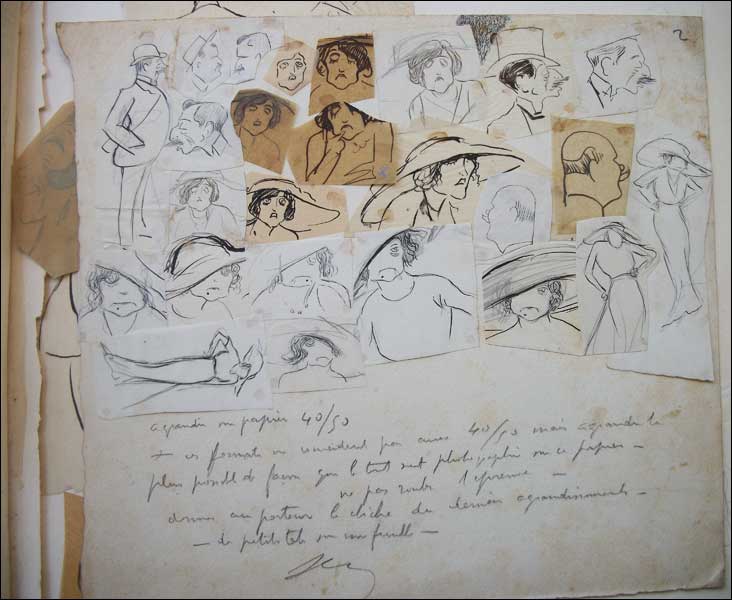 2
agrandir sur papier 40/50
ces formats ne coincident pas avec 40/50 mais agrandir le
plus possible de façon que le tout soit photographié sur ce papier -
ne pas rouler l'épreuve -
donner au porteur le cliché du dernier agrandissement -
- de petits tels sur une feuille -